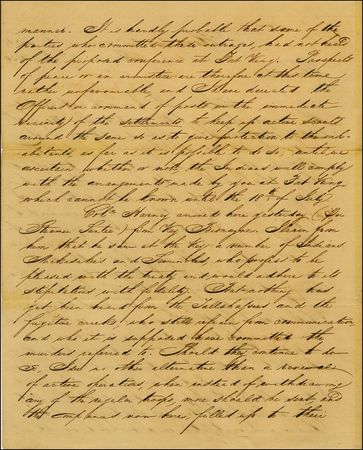 manner. It is hardly probable that some of the
parties, who committed these outrages, had not heard
of the proposed conference at Fort King. Prospects
of peace or an armistice are therefore at this time
rather unfavourable, and I have directed the
Officers in command of posts in the immediate
vicinity of the settlements to keep up active scouts
around the same so as to give protection to the inhabitants
as far as it is possible to do so, until we
ascertain whether or not the Indians will comply
with the arrangements made by you at Fort King
which cannot be known until the 18th of July.
Col. Harney arrived here yesterday (
Steamer ) from Key Biscayne. I learn from
him that he saw at the Key a number of Indians
Mickasukies and Seminoles who profess to be
pleased with the treaty and would adhere to its
stipulations with fidelity. But nothing has
yet been heard from the Tallahassees and the
fugitive creeks, who still refrain from communication
and who it is supposed have committed the
murders referred to. Should they continue to do
so, I see no other alternative than a renewal
of active operations, when instead of withdrawing
any of the regular troops, more should be sent, and
the companies now here, filled up to their